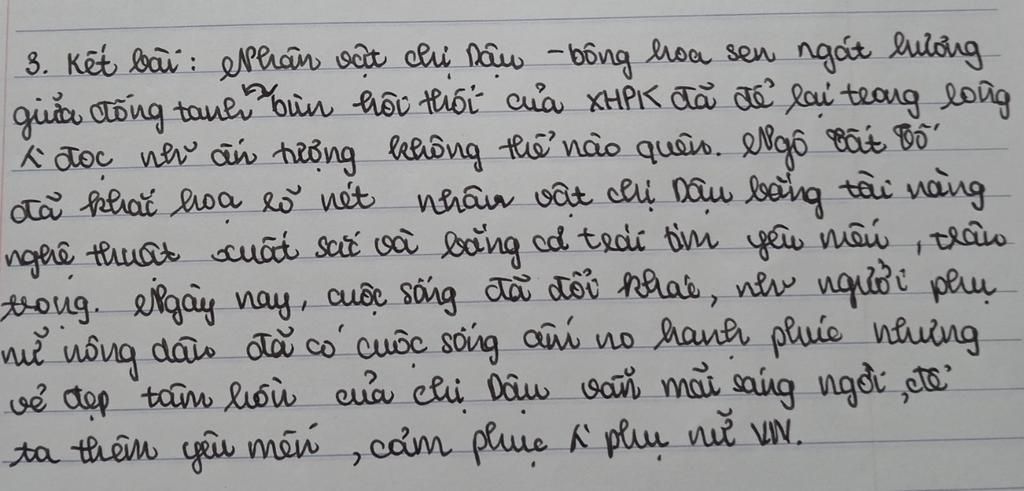 3. Kết bài: Nhân vật chị Dậu - bông hoa sen ngát hương
giữa đống tanh bùn hôi thối của XHPK đã để lại trong lòng
đọc như ấn tượng không thể nào quên. Ngô Tất Tố
đã khắc hoạ rõ nét nhân vật chị Dậu bằng tài năng
nghệ thuật xuất sắc và bằng cả trái tim yêu mến, trân
trọng. Ngày nay, cuộc sống đã đổi khác, như người phụ
nữ nông dân đã có cuộc sống ấm no hạnh phúc nhưng
vẻ đẹp tâm hồn của chị Dậu vẫn mãi sáng ngời, để
ta thêm yêu mến, cảm phục phụ nữ VN.